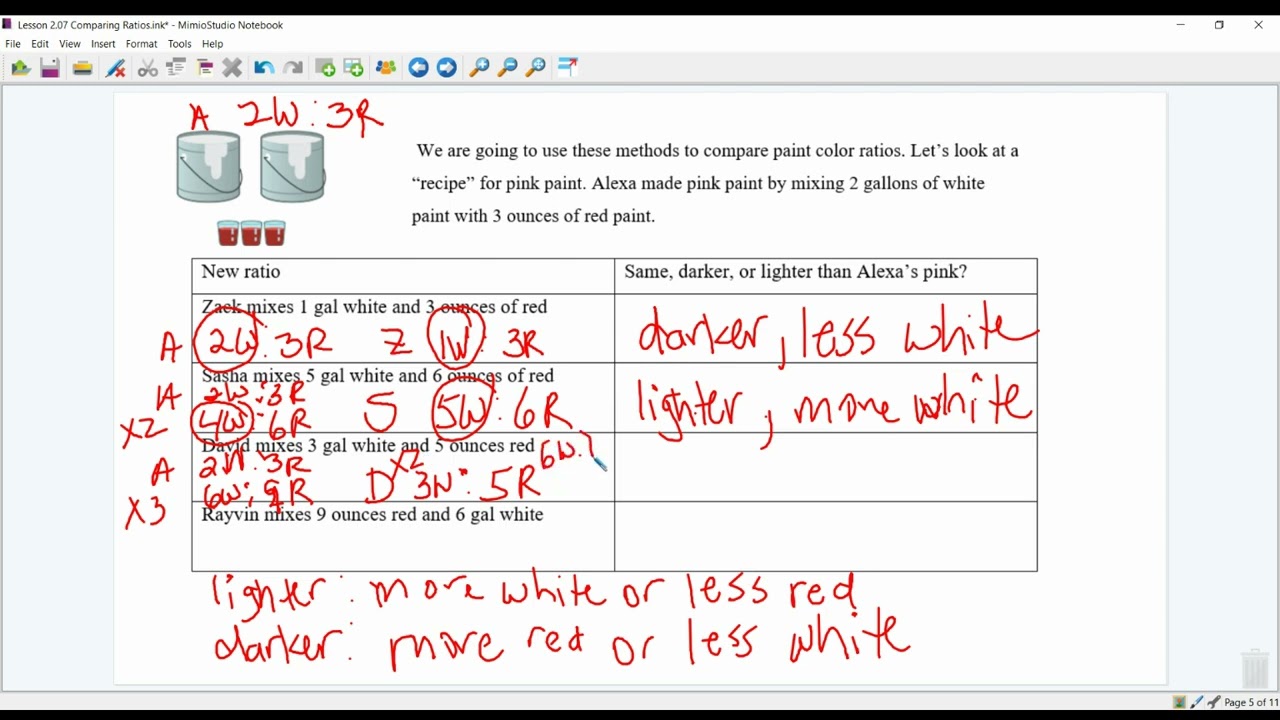 Lesson 2.07 Comparing Ratios.ink* - MimioStudio Notebook
File Edit View Insert Format Tools Help
A 2W : 3R
We are going to use these methods to compare paint color ratios. Let’s look at a
“recipe” for pink paint. Alexa made pink paint by mixing 2 gallons of white
paint with 3 ounces of red paint.
New ratio Same, darker, or lighter than Alexa’s pink?
Zack mixes 1 gal white and 3 ounces of red
A 2W : 3R Z 1W : 3R darker, less white
Sasha mixes 5 gal white and 6 ounces of red
A 2W : 3R
X2 4W : 6R S 5W : 6R lighter, more white
David mixes 3 gal white and 5 ounces red 6W :
A 2W : 3R X2
X3 6W : 9R D 3W : 5R
Rayvin mixes 9 ounces red and 6 gal white
lighter : more white or less red
darker : more red or less white
Page 5 of 11